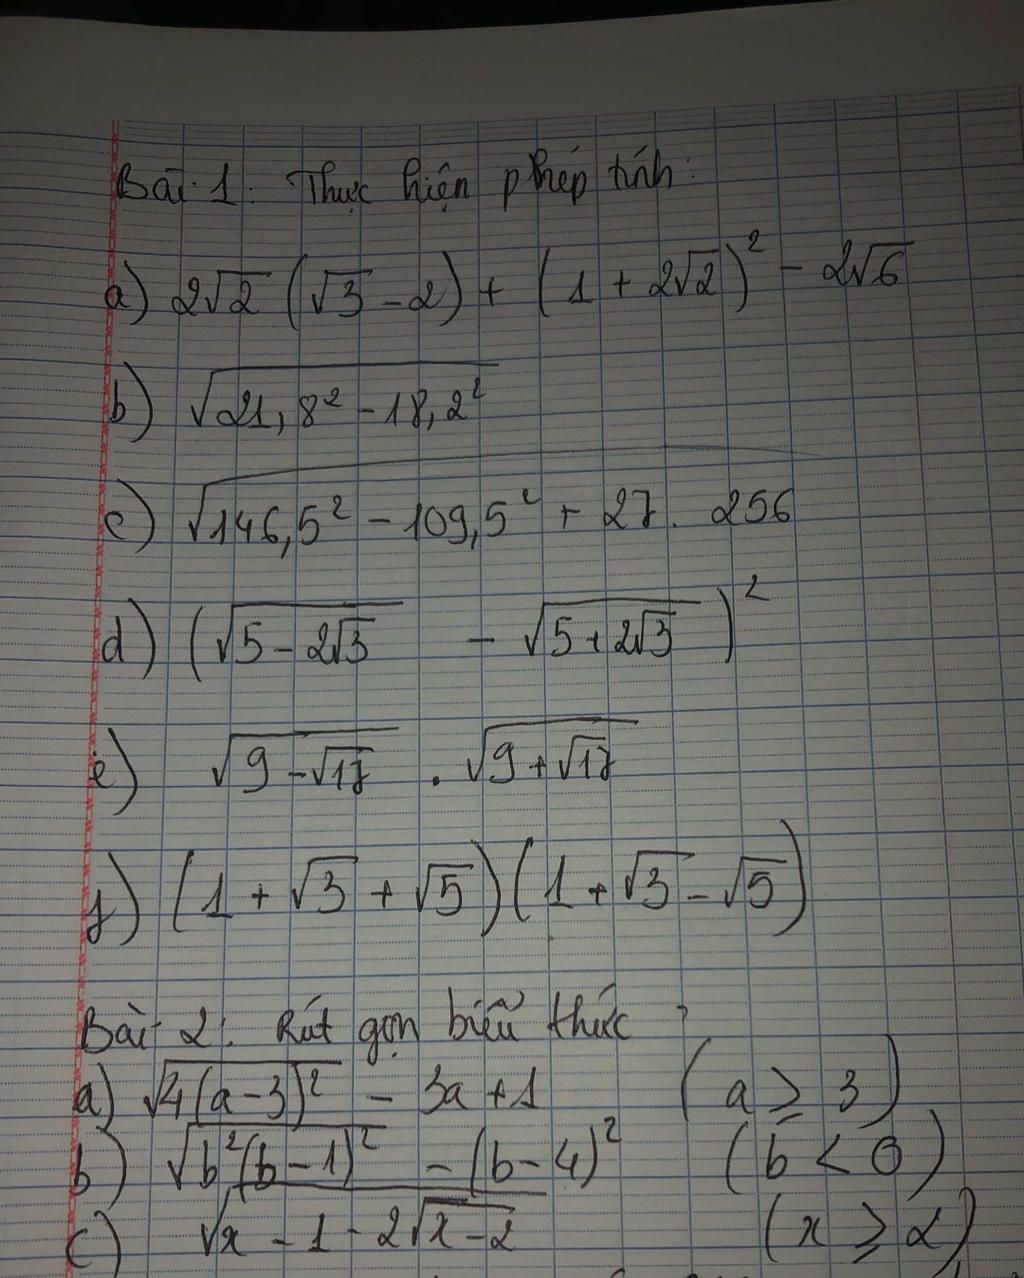 Bài 1. Thực hiện phép tính:
a) 2√2 (√3 - 2) + (1 + 2√2)² - 2√6
b) √(21,8² - 18,2²)
c) √(146,5² - 109,5² + 27 . 256)
d) (√(5 - 2√3) - √(5 + 2√3))²
e) √(9 - √17) . √(9 + √17)
f) (1 + √3 + √5)(1 + √3 - √5)
Bài 2: Rút gọn biểu thức
a) √(4(a - 3)²) - 3a + 1 (a ≥ 3)
b) √(b²(b - 1)²) - (b - 4)² (b < 0)
c) √(x - 1 - 2√(x - 2)) (x ≥ 2)